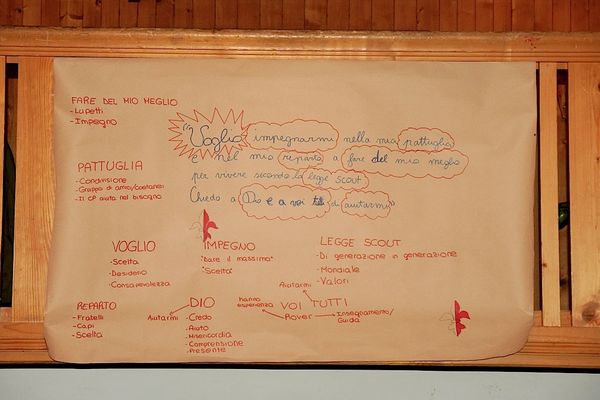 FARE DEL MIO MEGLIO
- Lupetti
- Impegno
"Voglio impegnarmi nella mia pattuglia
e nel mio reparto a fare del mio meglio
per vivere secondo la legge scout
Chiedo a Dio e a voi tutti di aiutarmi"
PATTUGLIA
- Condivisione
- Gruppo di amici/coetanei
- Il CP aiuta nel bisogno
VOGLIO
- Scelta
- Desiderio
- Consapevolezza
IMPEGNO
"Dare il massimo"
"Scelta"
LEGGE SCOUT
- Di generazione in generazione
- Mondiale
- Valori
REPARTO
- Fratelli
- Capi
- Scelta
Aiutarmi
DIO
- Credo
- Aiuto
- Misericordia
- Comprensione
- Presente
Aiutarmi
VOI TUTTI
hanno esperienza
Rover
Insegnamento/
Guida